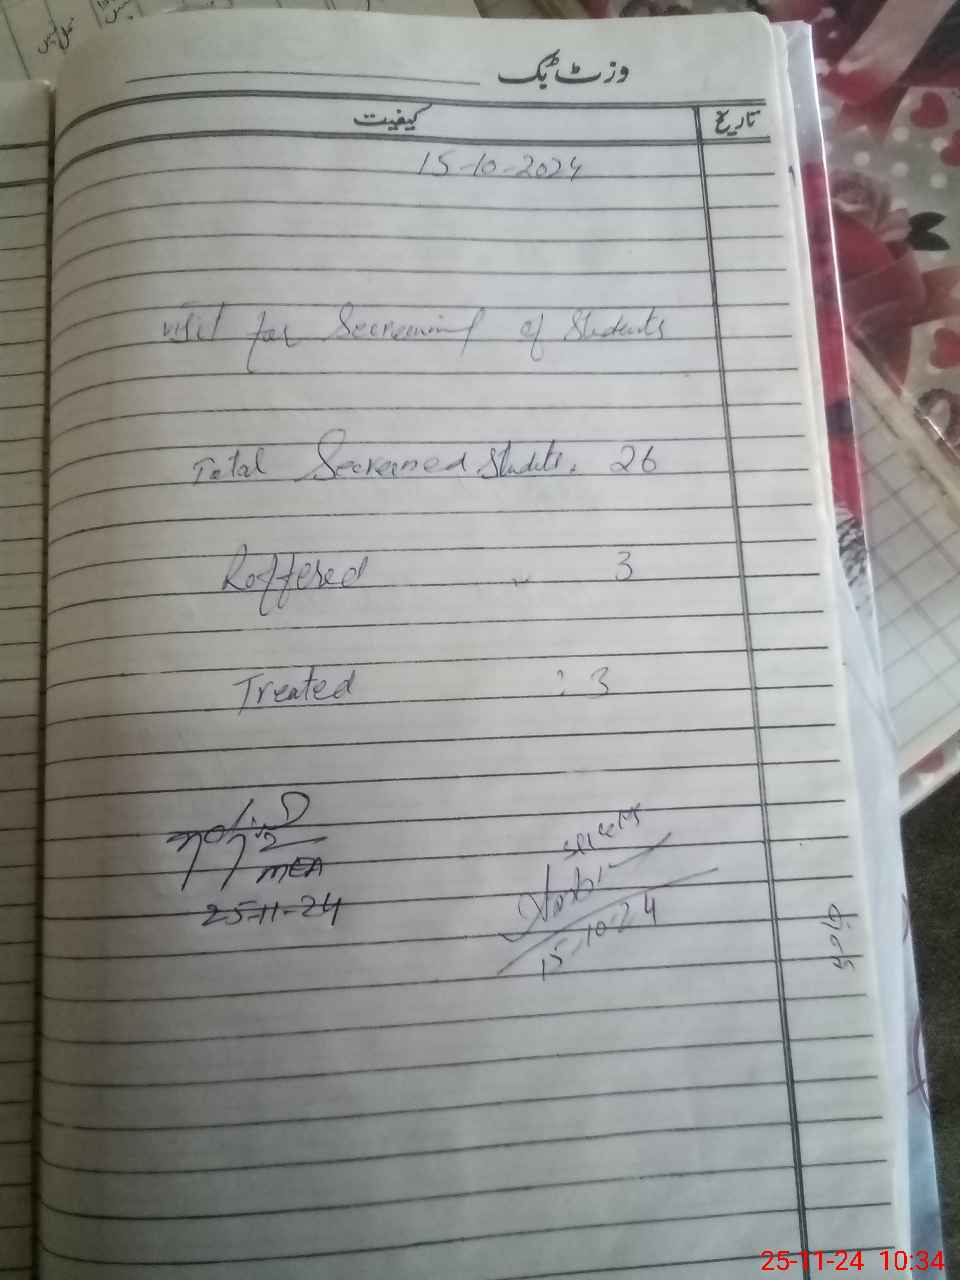 وزٹ بک
کیفیت
تاریخ
15-10-2024
visit for Secreening of Students
Total Secreened Students. 26
Reffered 3
Treated : 3
MEA
25-11-24
15-10-24
25-11-24 10:34